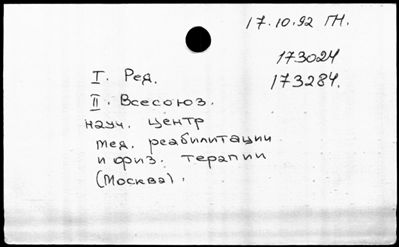 17.10.92 ГН.
173024
I. Ред.
173284.
II. Всесоюз.
науч. центр
мед. реабилитации
и физ. терапии
(Москва).